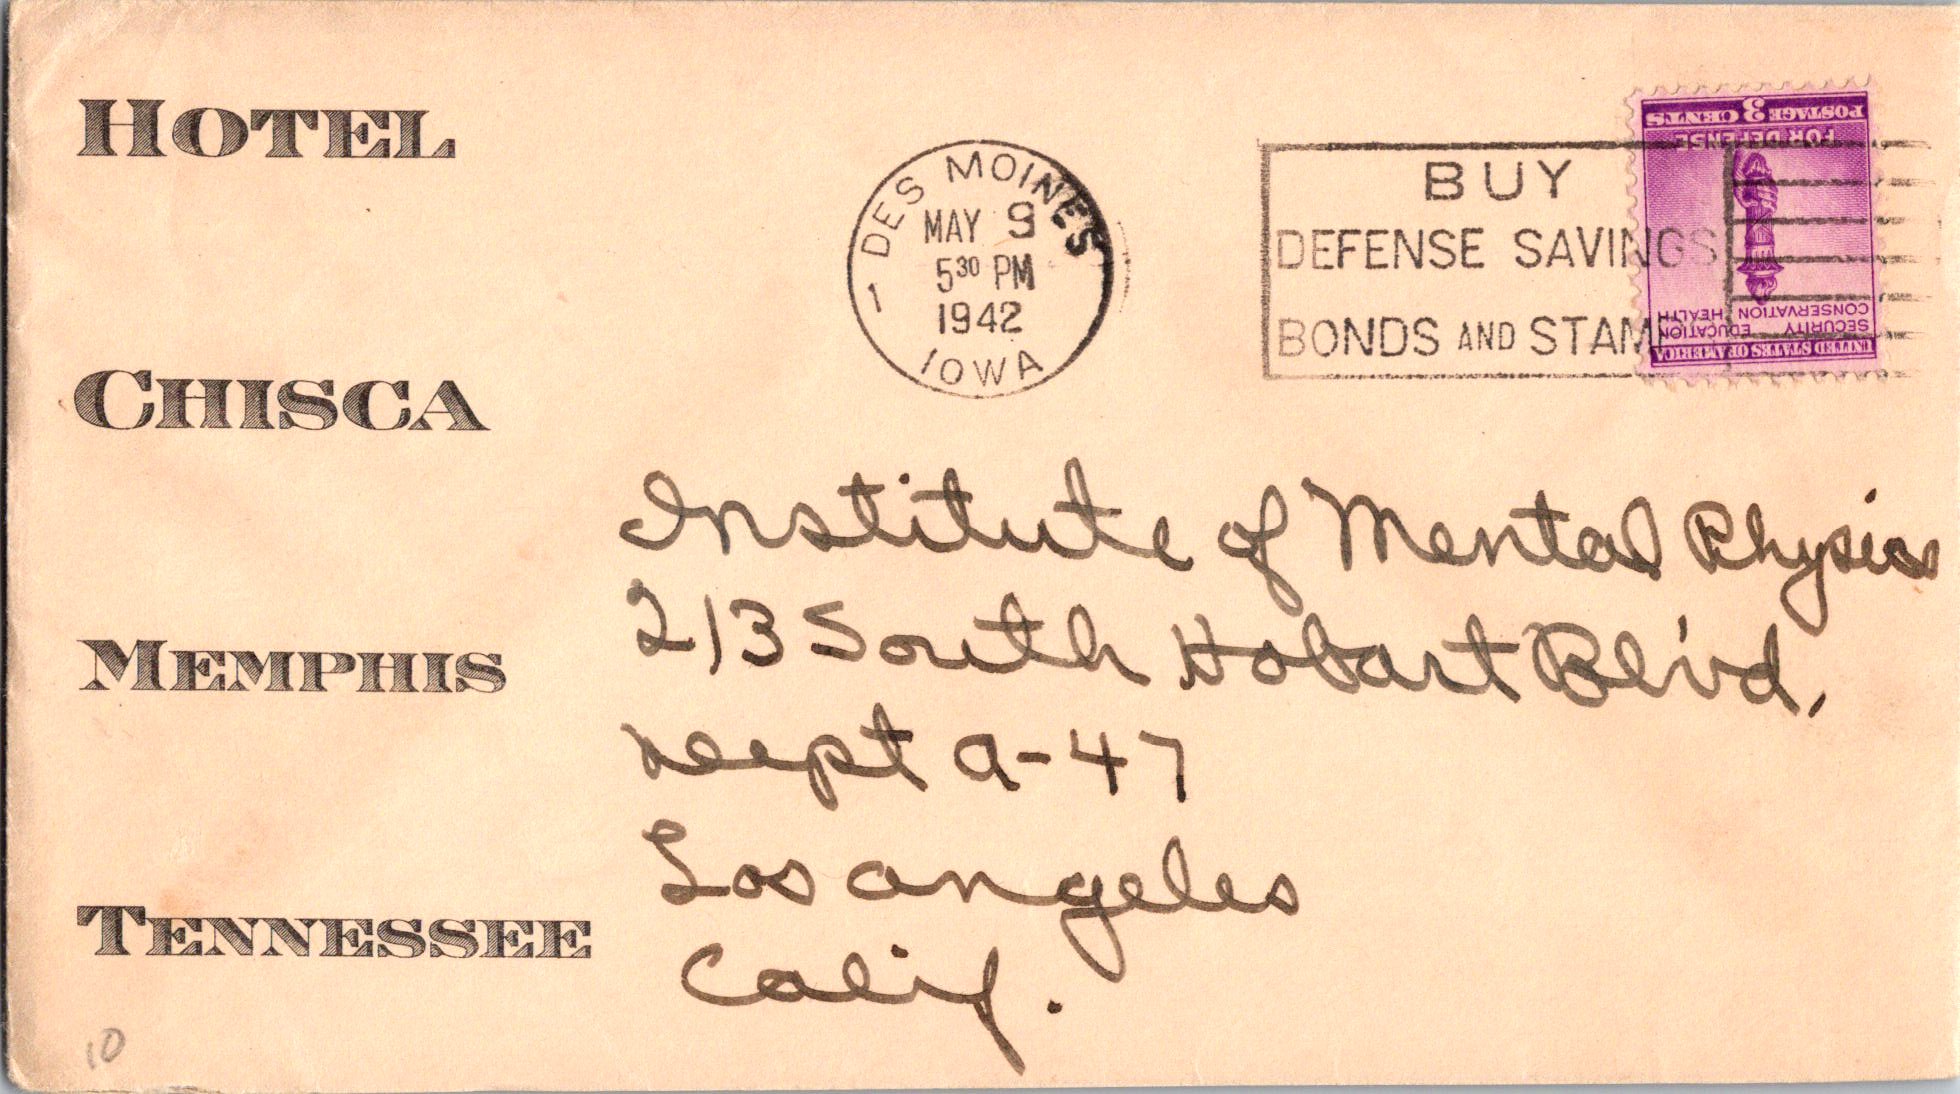 HOTEL
CHISCA
MEMPHIS
TENNESSEE
DES MOINES
MAY 9
5 30 PM
1942
1
IOWA
BUY
DEFENSE SAVINGS
BONDS AND STAM
UNITED STATES OF AMERICA
SECURITY EDUCATION
CONSERVATION HEALTH
FOR DEFENSE
POSTAGE 3 CENTS
Institute of Mental Physics
213 South Hobart Blvd.
Deept a-47
Los Angeles
Calif.
10